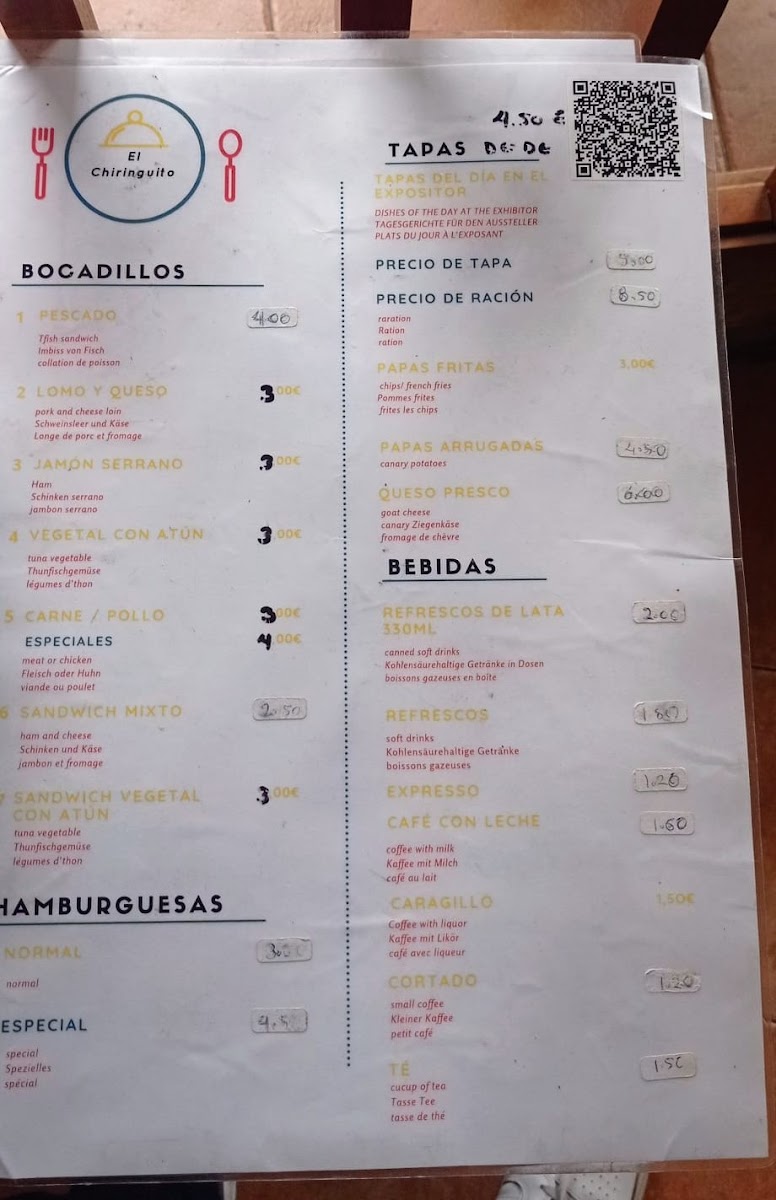 El
Chiringuito
BOCADILLOS
1 PESCADO 4.00
Tfish sandwich
Imbiss von Fisch
collation de poisson
2 LOMO Y QUESO 3,00€
pork and cheese loin
Schweinsleer und Käse
Longe de porc et fromage
3 JAMÓN SERRANO 3,00€
Ham
Schinken serrano
jambon serrano
4 VEGETAL CON ATÚN 3,00€
tuna vegetable
Thunfischgemüse
légumes d'thon
5 CARNE / POLLO 3,00€
ESPECIALES 4,00€
meat or chicken
Fleisch oder Huhn
viande ou poulet
6 SANDWICH MIXTO 2.50
ham and cheese
Schinken und Käse
jambon et fromage
7 SANDWICH VEGETAL 3,00€
CON ATÚN
tuna vegetable
Thunfischgemüse
légumes d'thon
HAMBURGUESAS
NORMAL
normal
ESPECIAL
special
Spezielles
spécial
4.50 €
TAPAS DESDE
TAPAS DEL DÍA EN EL
EXPOSITOR
DISHES OF THE DAY AT THE EXHIBITOR
TAGESGERICHTE FÜR DEN AUSSTELLER
PLATS DU JOUR À L'EXPOSANT
PRECIO DE TAPA
PRECIO DE RACIÓN 8.50
raration
Ration
ration
PAPAS FRITAS 3,00€
chips/ french fries
Pommes frites
frites les chips
PAPAS ARRUGADAS 4.50
canary potatoes
QUESO PRESCO 6.00
goat cheese
canary Ziegenkäse
fromage de chèvre
BEBIDAS
REFRESCOS DE LATA 2.00
330ML
canned soft drinks
Kohlensäurehaltige Getränke in Dosen
boissons gazeuses en boîte
REFRESCOS
soft drinks
Kohlensäurehaltige Getränke
boissons gazeuses
EXPRESSO 1.20
CAFÉ CON LECHE 1.60
coffee with milk
Kaffee mit Milch
café au lait
CARAGILLO 1,50€
Coffee with liquor
Kaffee mit Likör
café avec liqueur
CORTADO 1.20
small coffee
Kleiner Kaffee
petit café
TÉ 1.50
cucup of tea
Tasse Tee
tasse de thé